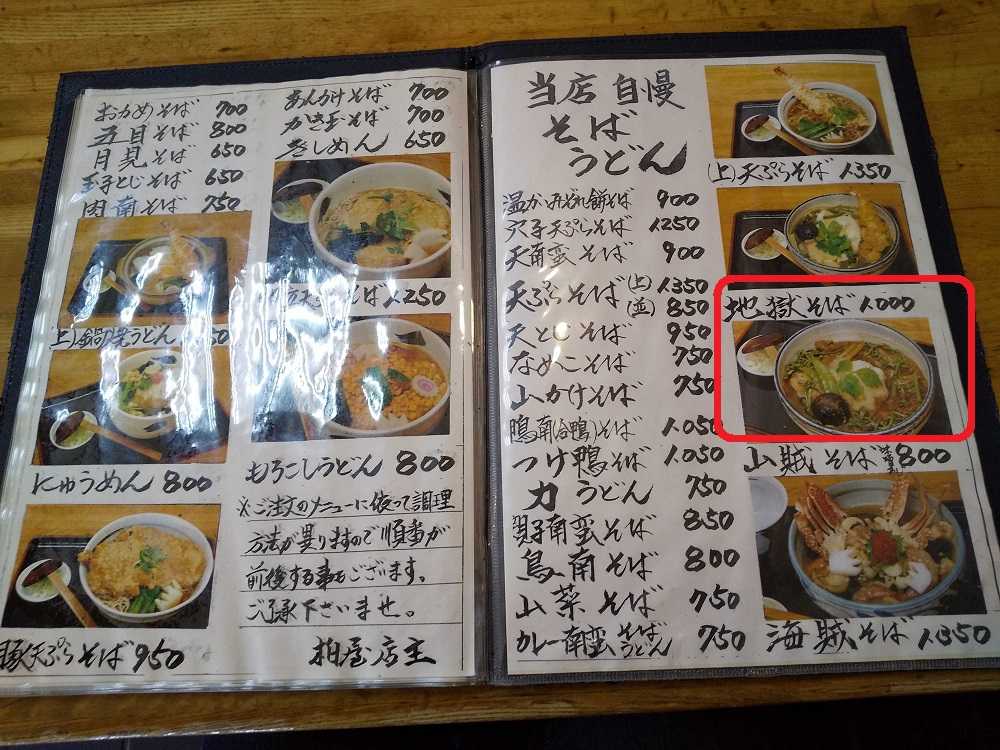 おかめそば 700
五目そば 800
月見そば 650
玉子とじそば 650
肉南そば 750
上)鍋焼うどん
にゅうめん 800
豚天ぷらそば 950
あんかけそば 700
かき玉そば 700
きしめん 650
天ぷらそば 1250
もろこしうどん 800
※ご注文のメニューに依って調理
方法が異りますので順番が
前後する事もございます。
ご了承下さいませ。
柏屋店主
当店自慢
そば
うどん
温かいみぞれ餅そば 900
穴子天ぷらそば 1250
天南蛮そば 900
天ぷらそば (上) 1350
(並) 850
天とじそば 950
なめこそば 750
山かけそば 750
鴨南(合鴨)そば 1050
つけ鴨そば 1050
力うどん 750
南蛮そば 850
鳥南そば 800
山菜そば 750
カレー南蛮 そば うどん 750
(上)天ぷらそば 1350
地獄そば 1000
山賊そば 800
海賊そば 1350